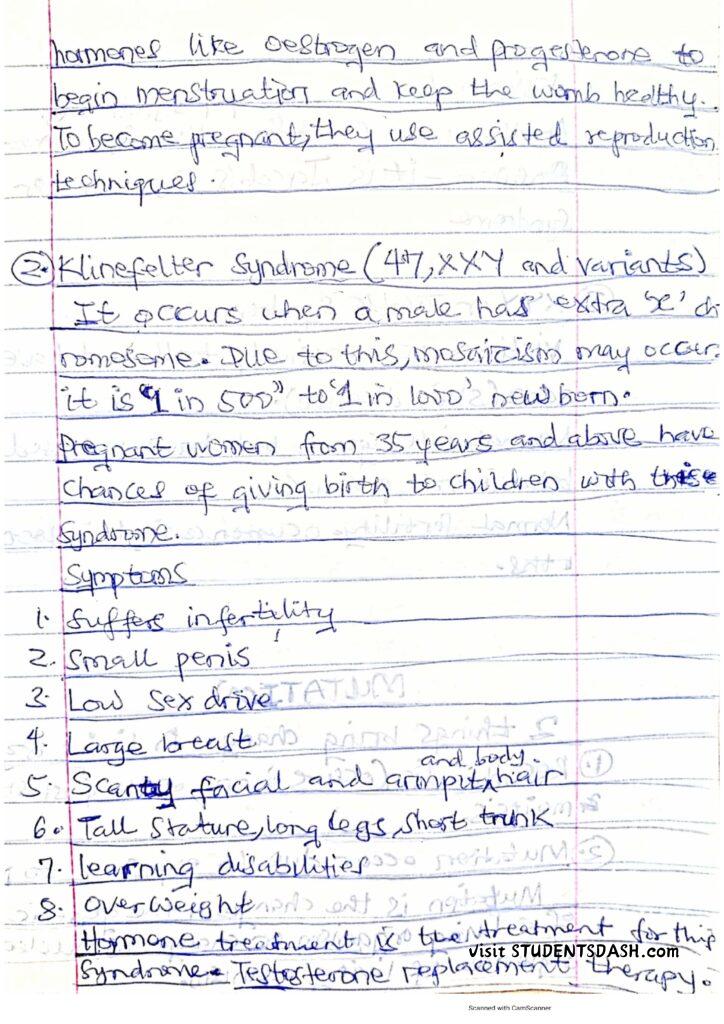 hormones like oestrogen and progesterone to
begin menstruation and keep the womb healthy.
To become pregnant, they use assisted reproduction
techniques.
2. Klinefelter Syndrome (47, XXY and variants)
It occurs when a male has extra 'x' ch
romosome. Due to this, mosaicism may occur.
it is "1 in 500" to '1 in 1000' newborn.
Pregnant women from 35 years and above have
chances of giving birth to children with this
syndrome.
Symptoms
1. Suffers infertility
2. Small penis
3. Low sex drive
4. Large breast
and body.
5. Scanty facial and armpit ^ hair
6. Tall stature, long legs, short trunk
7. learning disabilities
8. overweight
Hormone treatment is the treatment for this
visit STUDENTSDASH.com
Syndrome. Testosterone replacement therapy.
Scanned with CamScanner